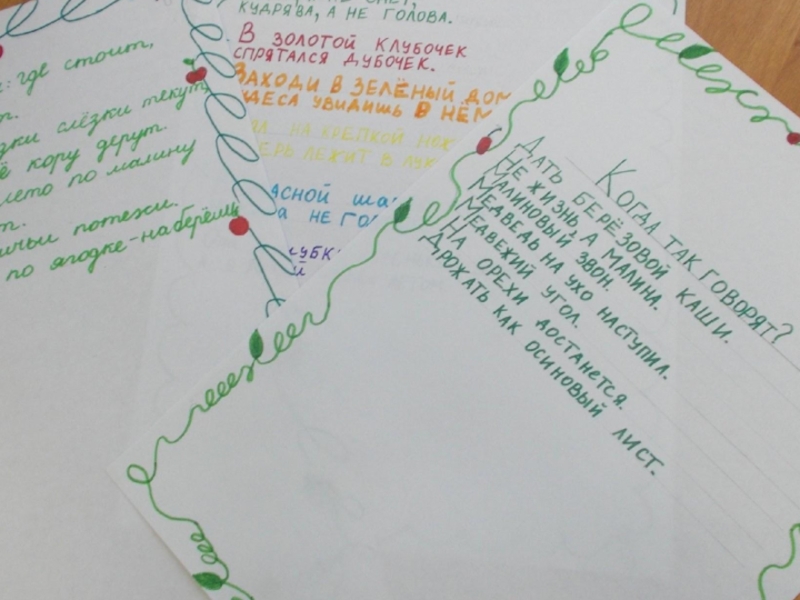 где стоит,
слёзки текут
кору дерут.
лето по малину
потехи.
по ягодке - наберёшь
КУДРЯВА, А НЕ ГОЛОВА.
В ЗОЛОТОЙ КЛУБОЧЕК
СПРЯТАЛСЯ ДУБОЧЕК.
ЗАХОДИ В ЗЕЛЁНЫЙ ДОМ
УВИДИШЬ В НЁМ
НА КРЕПКОЙ
ЛЕЖИТ В
А НЕ
КОГДА ТАК ГОВОРЯТ?
ДАТЬ БЕРЁЗОВОЙ КАШИ.
НЕ ЖИЗНЬ, А МАЛИНА.
МАЛИНОВЫЙ ЗВОН.
МЕДВЕДЬ НА УХО НАСТУПИЛ.
МЕДВЕЖИЙ УГОЛ.
НА ОРЕХИ ДОСТАНЕТСЯ.
ДРОЖАТЬ КАК ОСИНОВЫЙ ЛИСТ.